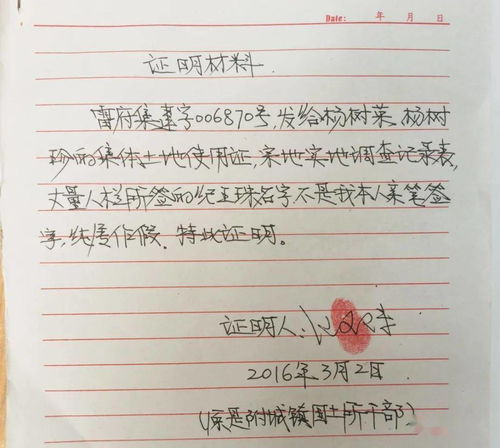 Date: 年 月 日
证明材料
雷府集建字006870号,发给杨树菜、杨树
珍的集体土地使用证,宗地实地调查记录表,
丈量人栏所签的纪玉珠名字不是我本人亲笔签
字,纯属作假。特此证明。
证明人:
2016年3月2日
(原是附城镇国土所干部)